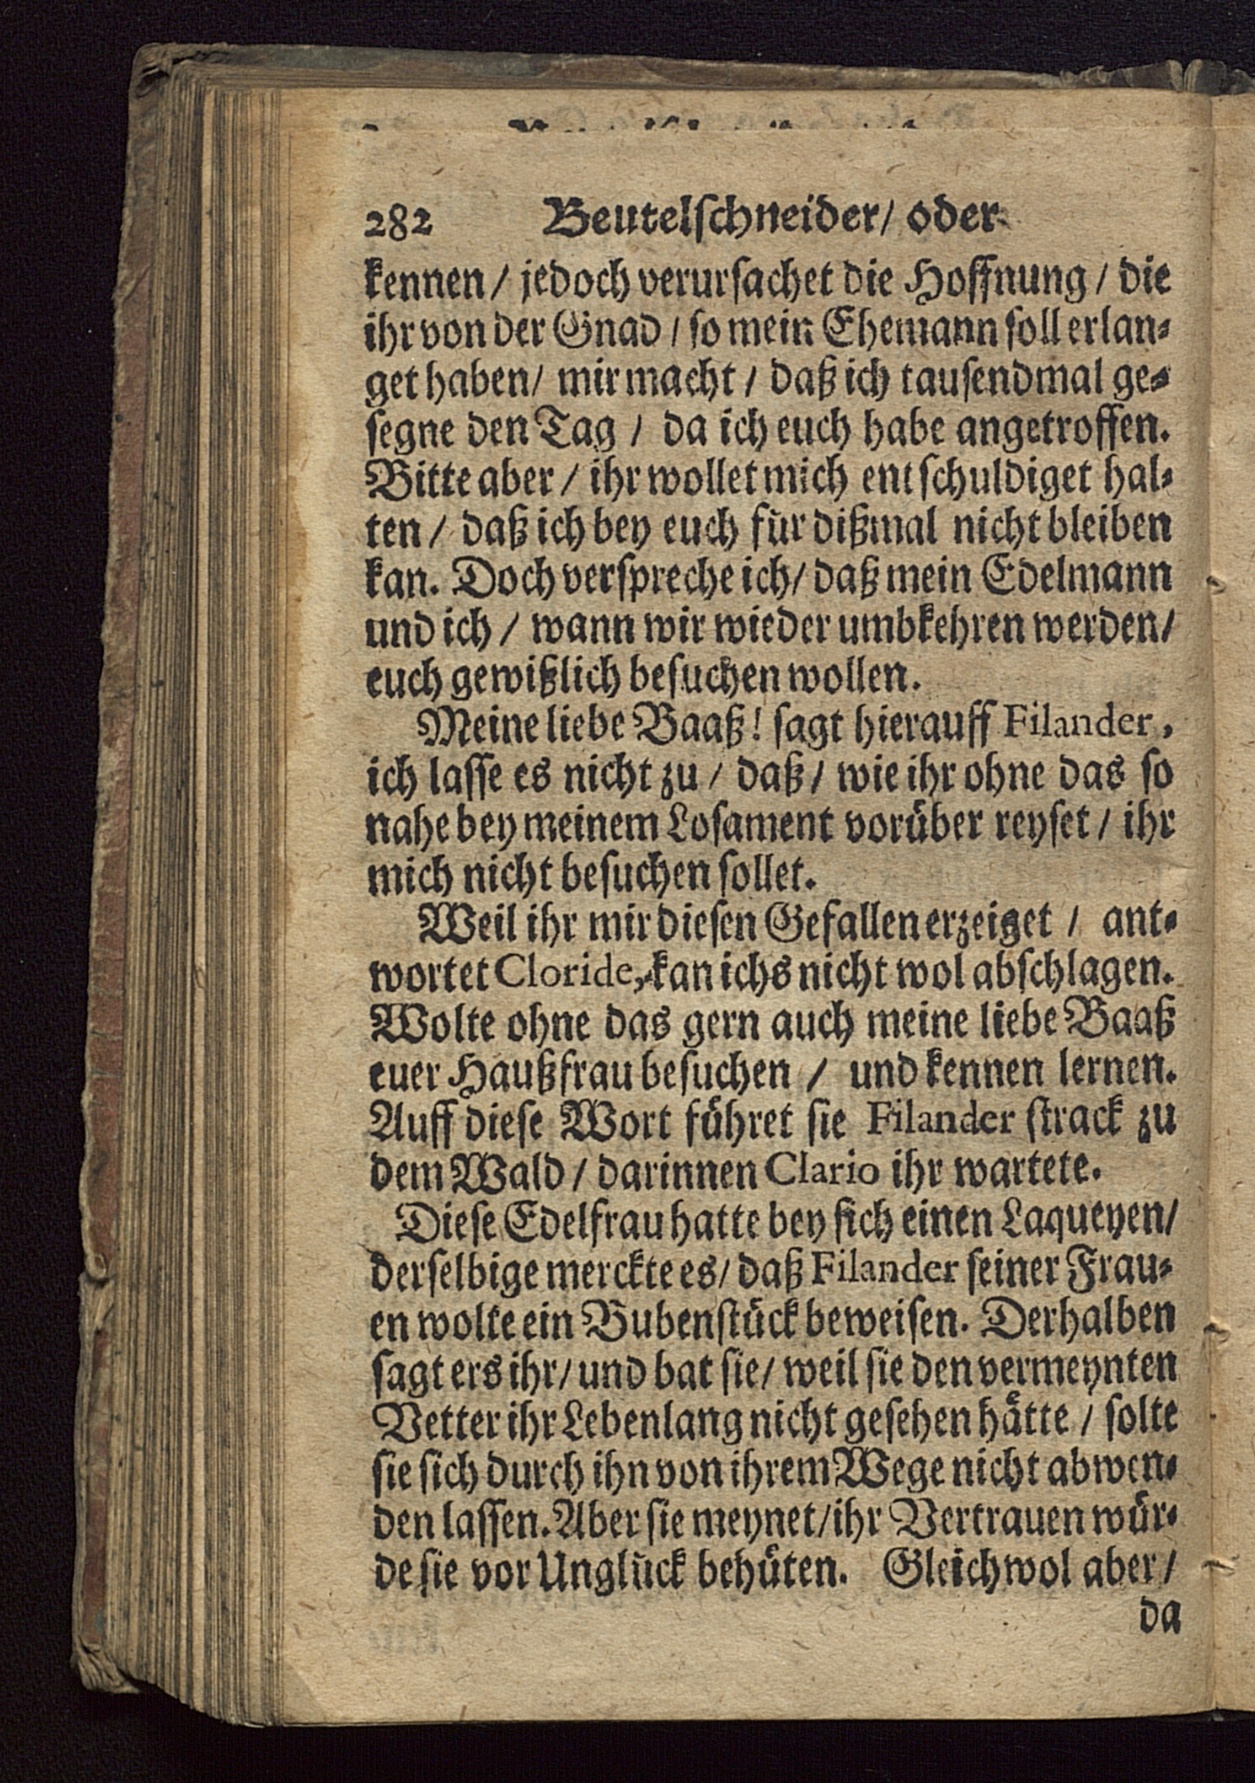 282 Beutelschneider/ oder
kennen/ jedoch verursachet die Hoffnung/ die
ihr von der Gnad/ so mein Ehemann soll erlan-
get haben/ mir macht/ daß ich tausendmal ge-
segne den Tag/ da ich euch habe angetroffen.
Bitte aber/ ihr wollet mich entschuldiget hal-
ten/ daß ich bey euch für dißmal nicht bleiben
kan. Doch verspreche ich/ daß mein Edelmann
und ich/ wann wir wieder umbkehren werden/
euch gewißlich besuchen wollen.
Meine liebe Baaß! sagt hierauff Filander,
ich lasse es nicht zu/ daß/ wie ihr ohne das so
nahe bey meinem Losament vorüber reyset/ ihr
mich nicht besuchen sollet.
Weil ihr mir diesen Gefallen erzeiget/ ant-
wortet Cloride, kan ichs nicht wol abschlagen.
Wolte ohne das gern auch meine liebe Baaß
euer Haußfrau besuchen/ und kennen lernen.
Auff diese Wort führet sie Filander strack zu
dem Wald/ darinnen Clario ihr wartete.
Diese Edelfrau hatte bey sich einen Laqueyen/
derselbige merckte es/ daß Filander seiner Frau-
en wolte ein Bubenstück beweisen. Derhalben
sagt ers ihr/ und bat sie/ weil sie den vermeynten
Vetter ihr Lebenlang nicht gesehen hätte/ solte
sie sich durch ihn von ihrem Wege nicht abwen-
den lassen. Aber sie meynet/ ihr Vertrauen wür-
de sie vor Unglück behüten. Gleichwol aber/
da